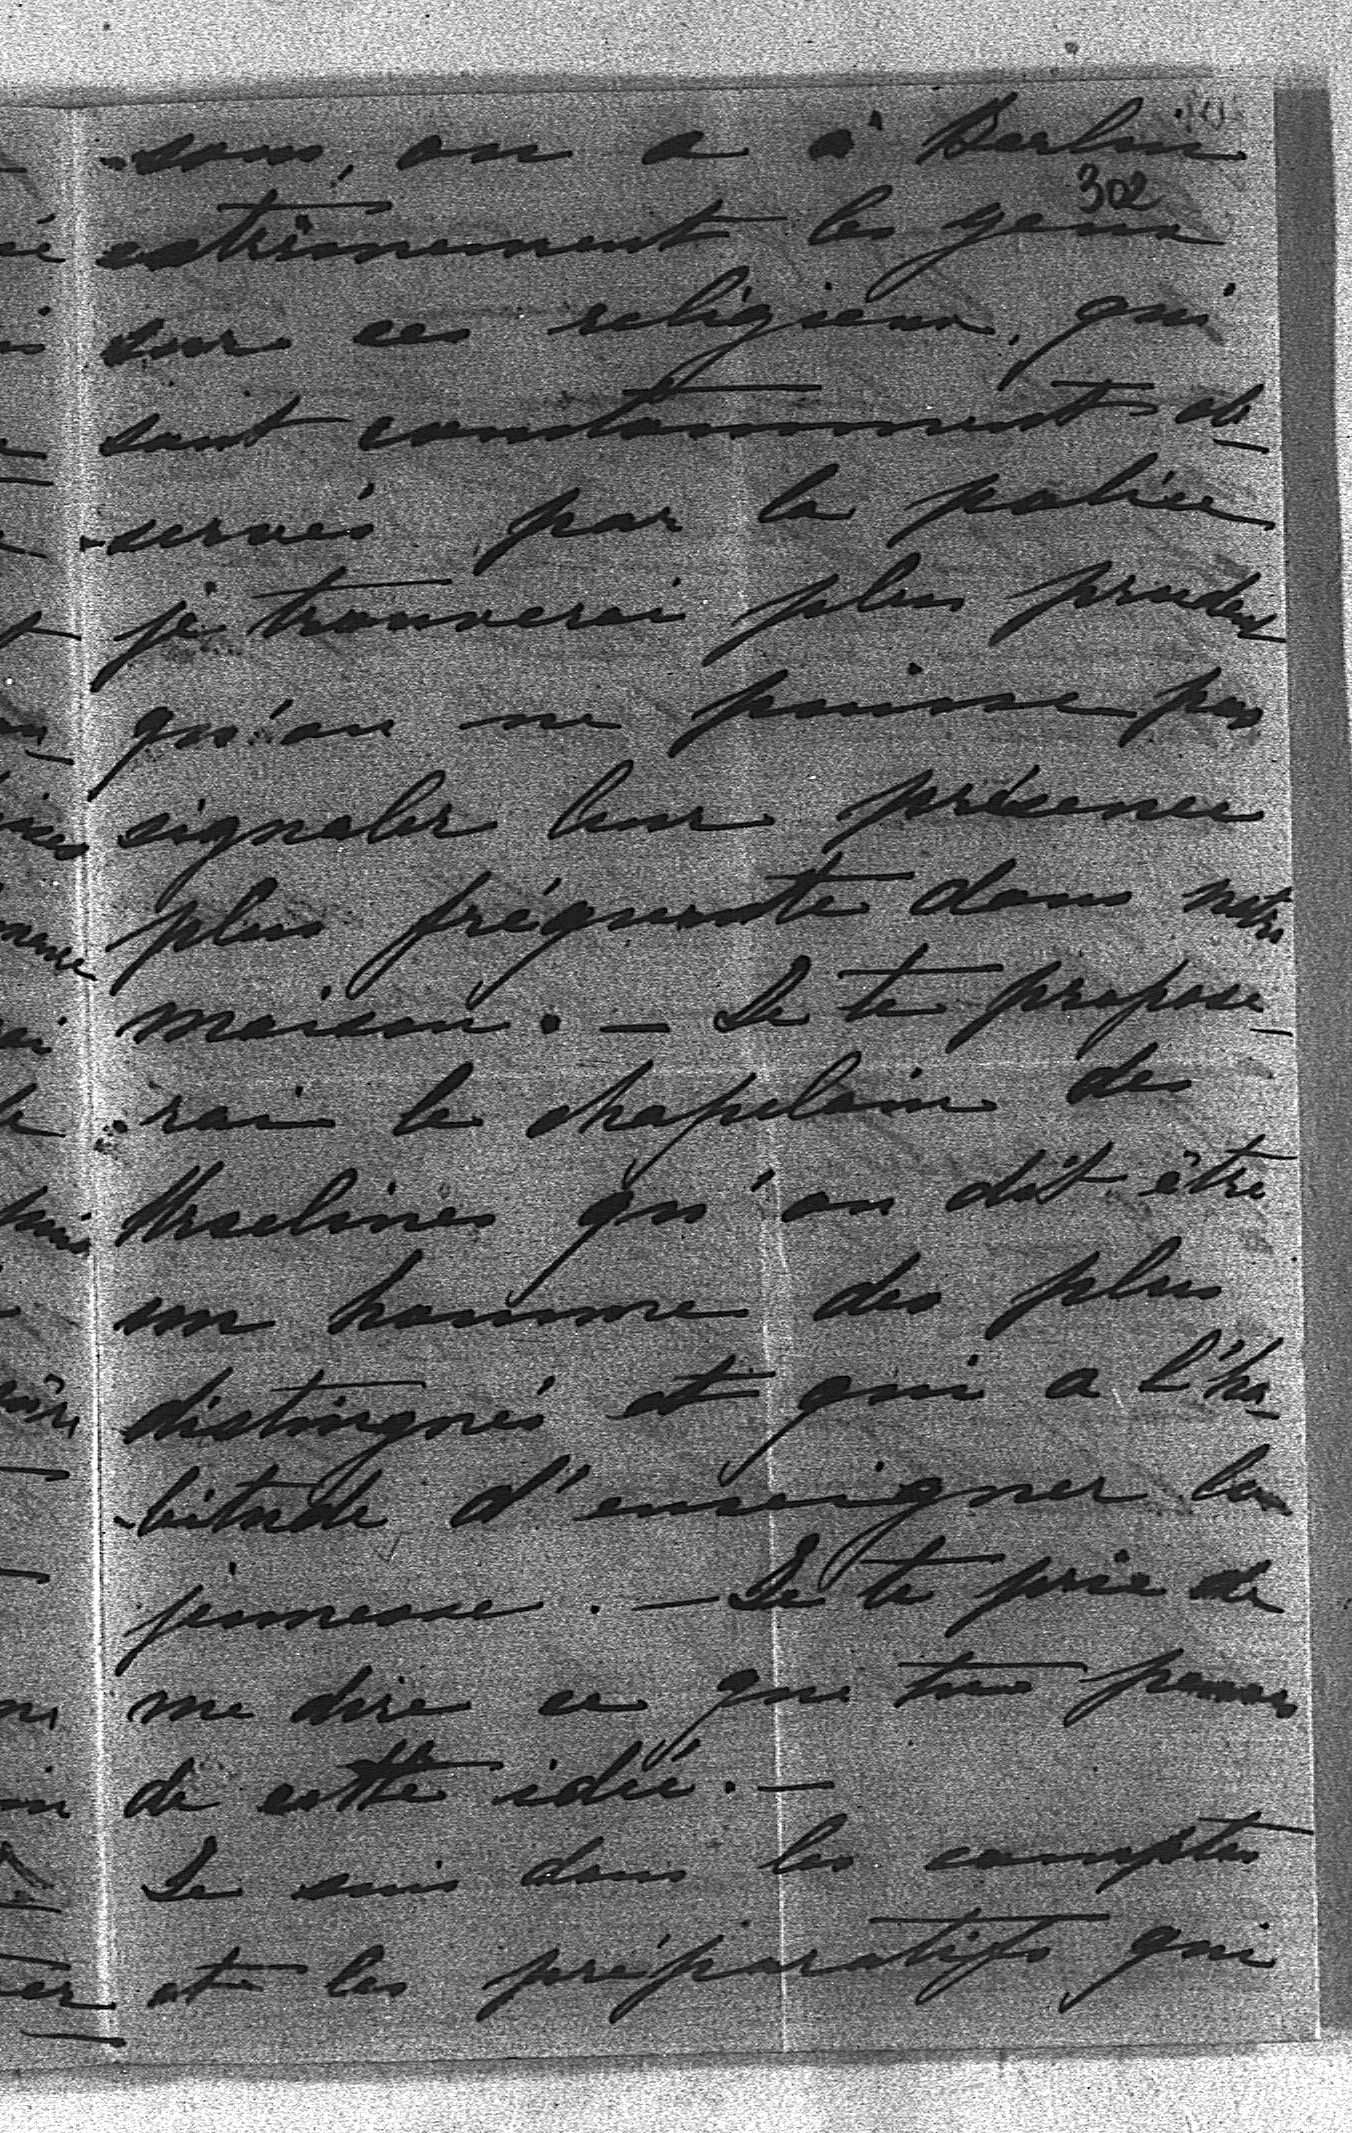 -sons, on a à Berlin
302
extrêmement les yeux
sur ces religieux, qui
sont constamment ob-
-servés par la police
je trouverai plus prudent
qu'on ne puisse pas
signaler leur présence
plus fréquente dans notre
maison. — Je te propose-
rais le chapelain des
Ursulines qu'on dit être
un homme des plus
distingués et qui a l'ha-
-bitude d'enseigner la
jeunesse. — Je te prie de
me dire ce que tu penses
de cette idée. —
Je suis dans les comptes
et les préparatifs qui